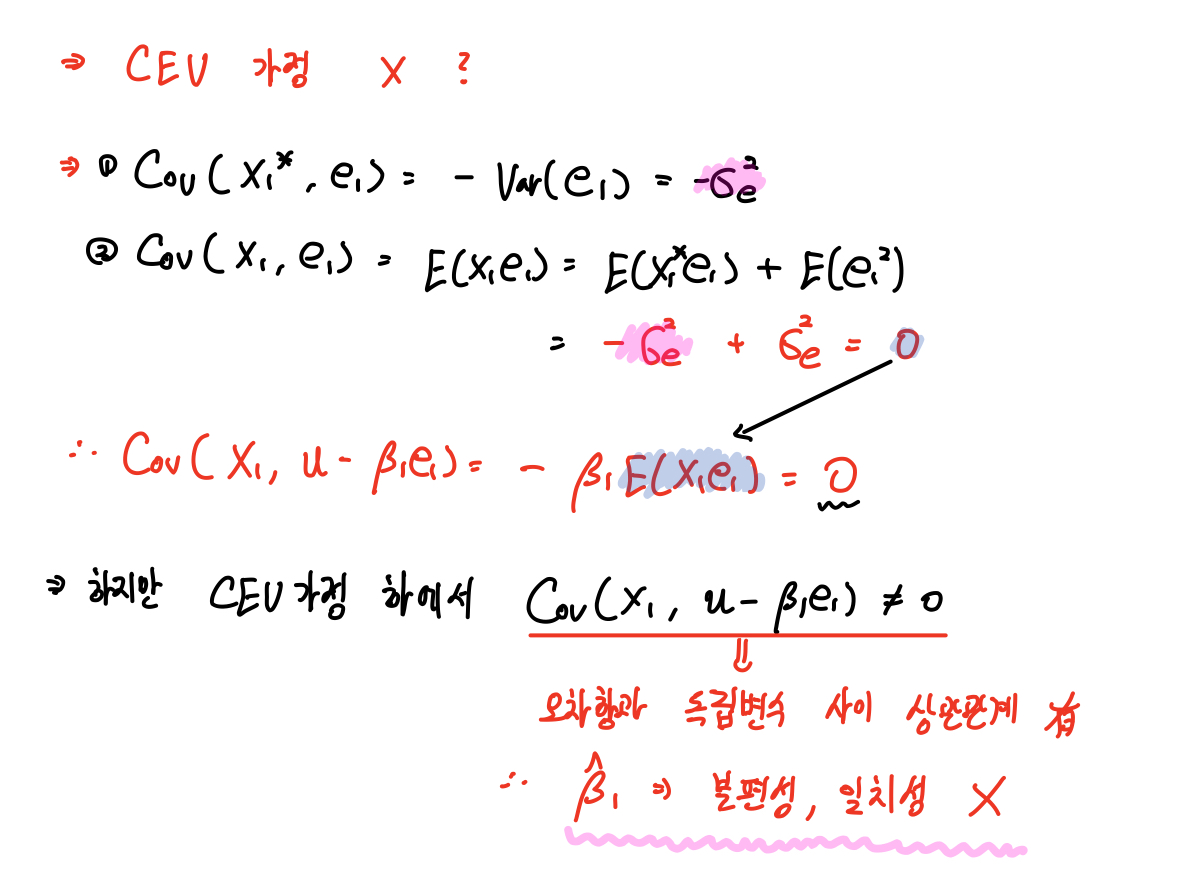 ⇒ CEV 가정 X ?
⇒ ① Cov(x₁*, e₁) = - Var(e₁) = -σₑ²
② Cov(x₁, e₁) = E(x₁e₁) = E(x₁*e₁) + E(e₁²)
= -σₑ² + σₑ² = 0
∴ Cov(x₁, u - β₁e₁) = - β₁E(x₁e₁) = 0
⇒ 하지만 CEV가정 하에서 Cov(x₁, u - β₁e₁) ≠ 0
⇓
오차항과 독립변수 사이 상관관계 有
∴ β̂₁ ⇒ 불편성, 일치성 X